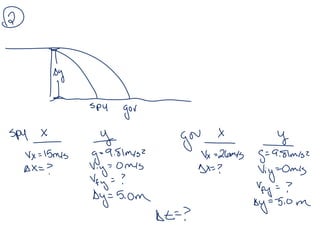 2
Δy
spy gov
spy x y
Vx=15m/s g=9.81m/s²
Δx=? Viy=0m/s
Vfy=?
Δy=5.0m
gov x y
Vx=26m/s g=9.81m/s²
Δx=? Viy=0m/s
Vfy=?
Δy=5.0m
Δt=?